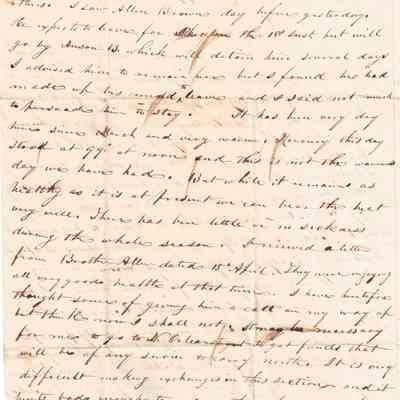 I saw Allen Brown day before yesterday
He expects to leave for the 18 Inst but will
go by B. which will detain him several days
I advised him to remain here but I found he had
made up his mind to leave and I said not much
to persuade him to stay. It has been very dry
here since March and very warm. Mercury this day
stood at 99° at noon and this is not the warmest
day we have had. But while it remains as
healthy as it is at present we can bear the heat
very well. There has been little or no sickness
during the whole season. I received a letter
from Brother Allen dated 18th April They were enjoying
all very good health at that time. I have heretofore
thought some of giving him a call on my way up
but think now I shall not, It may be necessary
for me to go to N. Orleans to get funds that
will be of any service to carry north. It is very
difficult making exchanges in this section and it